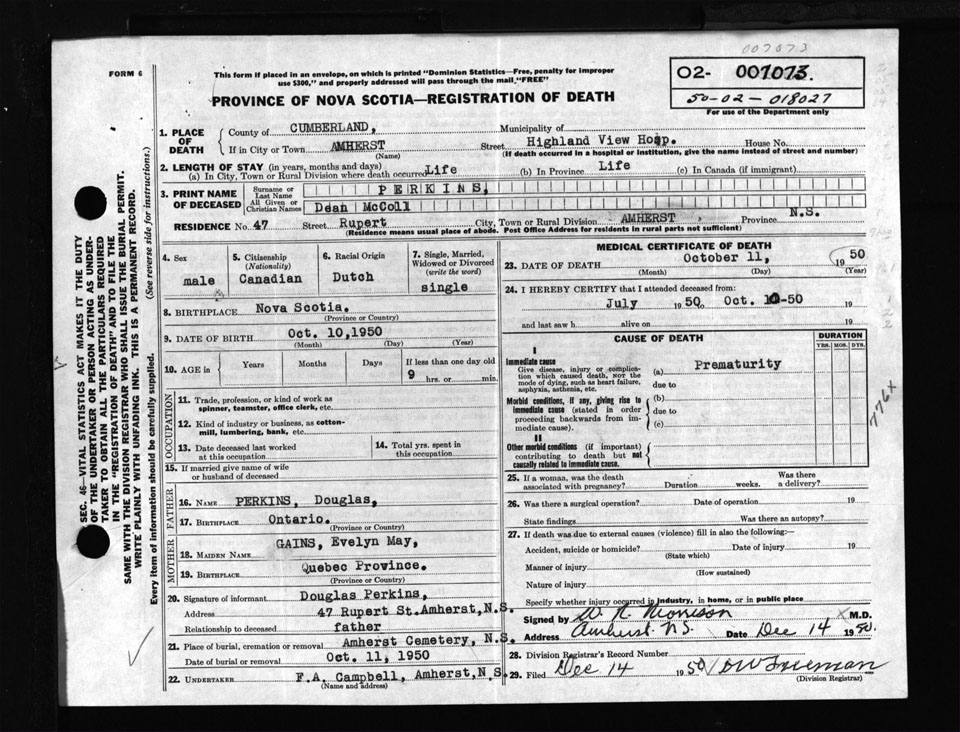 007073
FORM 6
This form if placed in an envelope, on which is printed "Dominion Statistics—Free, penalty for improper
use $300," and properly addressed will pass through the mail "FREE"
PROVINCE OF NOVA SCOTIA—REGISTRATION OF DEATH
02- 007073.
50-02-018027
For use of the Department only
1. PLACE OF DEATH
County of CUMBERLAND, Municipality of
If in City or Town AMHERST Street Highland View Hosp. House No.
(Name) (If death occurred in a hospital or institution, give the name instead of street and number)
2. LENGTH OF STAY (in years, months and days)
(a) In City, Town or Rural Division where death occurred Life (b) In Province Life (c) In Canada (if immigrant)
3. PRINT NAME OF DECEASED
Surname or Last Name PERKINS,
All Given or Christian Names Dean McColl
RESIDENCE No. 47 Street Rupert City, Town or Rural Division AMHERST Province N.S.
(Residence means usual place of abode. Post Office Address for residents in rural parts not sufficient)
4. Sex male
5. Citizenship (Nationality) Canadian
6. Racial Origin Dutch
7. Single, Married, Widowed or Divorced (write the word) single
8. BIRTHPLACE Nova Scotia.
(Province or Country)
9. DATE OF BIRTH Oct. 10,1950
(Month) (Day) (Year)
10. AGE in Years Months Days If less than one day old
9 hrs. or min.
OCCUPATION
11. Trade, profession, or kind of work as
spinner, teamster, office clerk, etc.
12. Kind of industry or business, as cotton-
mill, lumbering, bank, etc.
13. Date deceased last worked
at this occupation
14. Total yrs. spent in
this occupation
15. If married give name of wife
or husband of deceased
FATHER
16. NAME PERKINS, Douglas,
17. BIRTHPLACE Ontario.
(Province or Country)
MOTHER
18. MAIDEN NAME GAINS, Evelyn May,
19. BIRTHPLACE Quebec Province.
(Province or Country)
20. Signature of informant Douglas Perkins,
Address 47 Rupert St.Amherst,N.S.
Relationship to deceased father
21. Place of burial, cremation or removal Amherst Cemetery, N.S.
Date of burial or removal Oct. 11, 1950
22. UNDERTAKER F.A. Campbell, Amherst,N.S.
(Name and address)
MEDICAL CERTIFICATE OF DEATH
23. DATE OF DEATH October 11, 1950
(Month) (Day) (Year)
24. I HEREBY CERTIFY that I attended deceased from:
July 1950 Oct. -50 19
and last saw h alive on 19
CAUSE OF DEATH
DURATION
YRS. MOS. DYS.
I
Immediate cause
Give disease, injury or complica-
tion which caused death, NOT the
mode of dying, such as heart failure,
asphyxia, asthenia, etc.
(a) Prematurity
due to
Morbid conditions, if any, giving rise to
immediate cause (stated in order
proceeding backwards from im-
mediate cause).
(b)
due to
(c)
II
Other morbid conditions (if important)
contributing to death but not
causally related to immediate cause.
776X
25. If a woman, was the death
associated with pregnancy? Duration weeks. Was there
a delivery?
26. Was there a surgical operation? Date of operation 19
State findings Was there an autopsy?
27. If death was due to external causes (violence) fill in also the following:—
Accident, suicide or homicide? Date of injury 19
(State which)
Manner of injury
(How sustained)
Nature of injury
Specify whether injury occurred in industry, in home, or in public place
Signed by W R Morrison M.D.
Address Amherst N.S. Date Dec 14 1950.
28. Division Registrar's Record Number
29. Filed Dec 14 1950 Freeman
(Division Registrar)
SEC. 46—VITAL STATISTICS ACT MAKES IT THE DUTY
OF THE UNDERTAKER OR PERSON ACTING AS UNDER-
TAKER TO OBTAIN ALL THE PARTICULARS REQUIRED
IN THE "REGISTRATION OF DEATH" AND TO FILE THE
SAME WITH THE DIVISION REGISTRAR WHO SHALL ISSUE THE BURIAL PERMIT.
WRITE PLAINLY WITH UNFADING INK. THIS IS A PERMANENT RECORD.
(See reverse side for instructions.)
Every item of information should be carefully supplied.